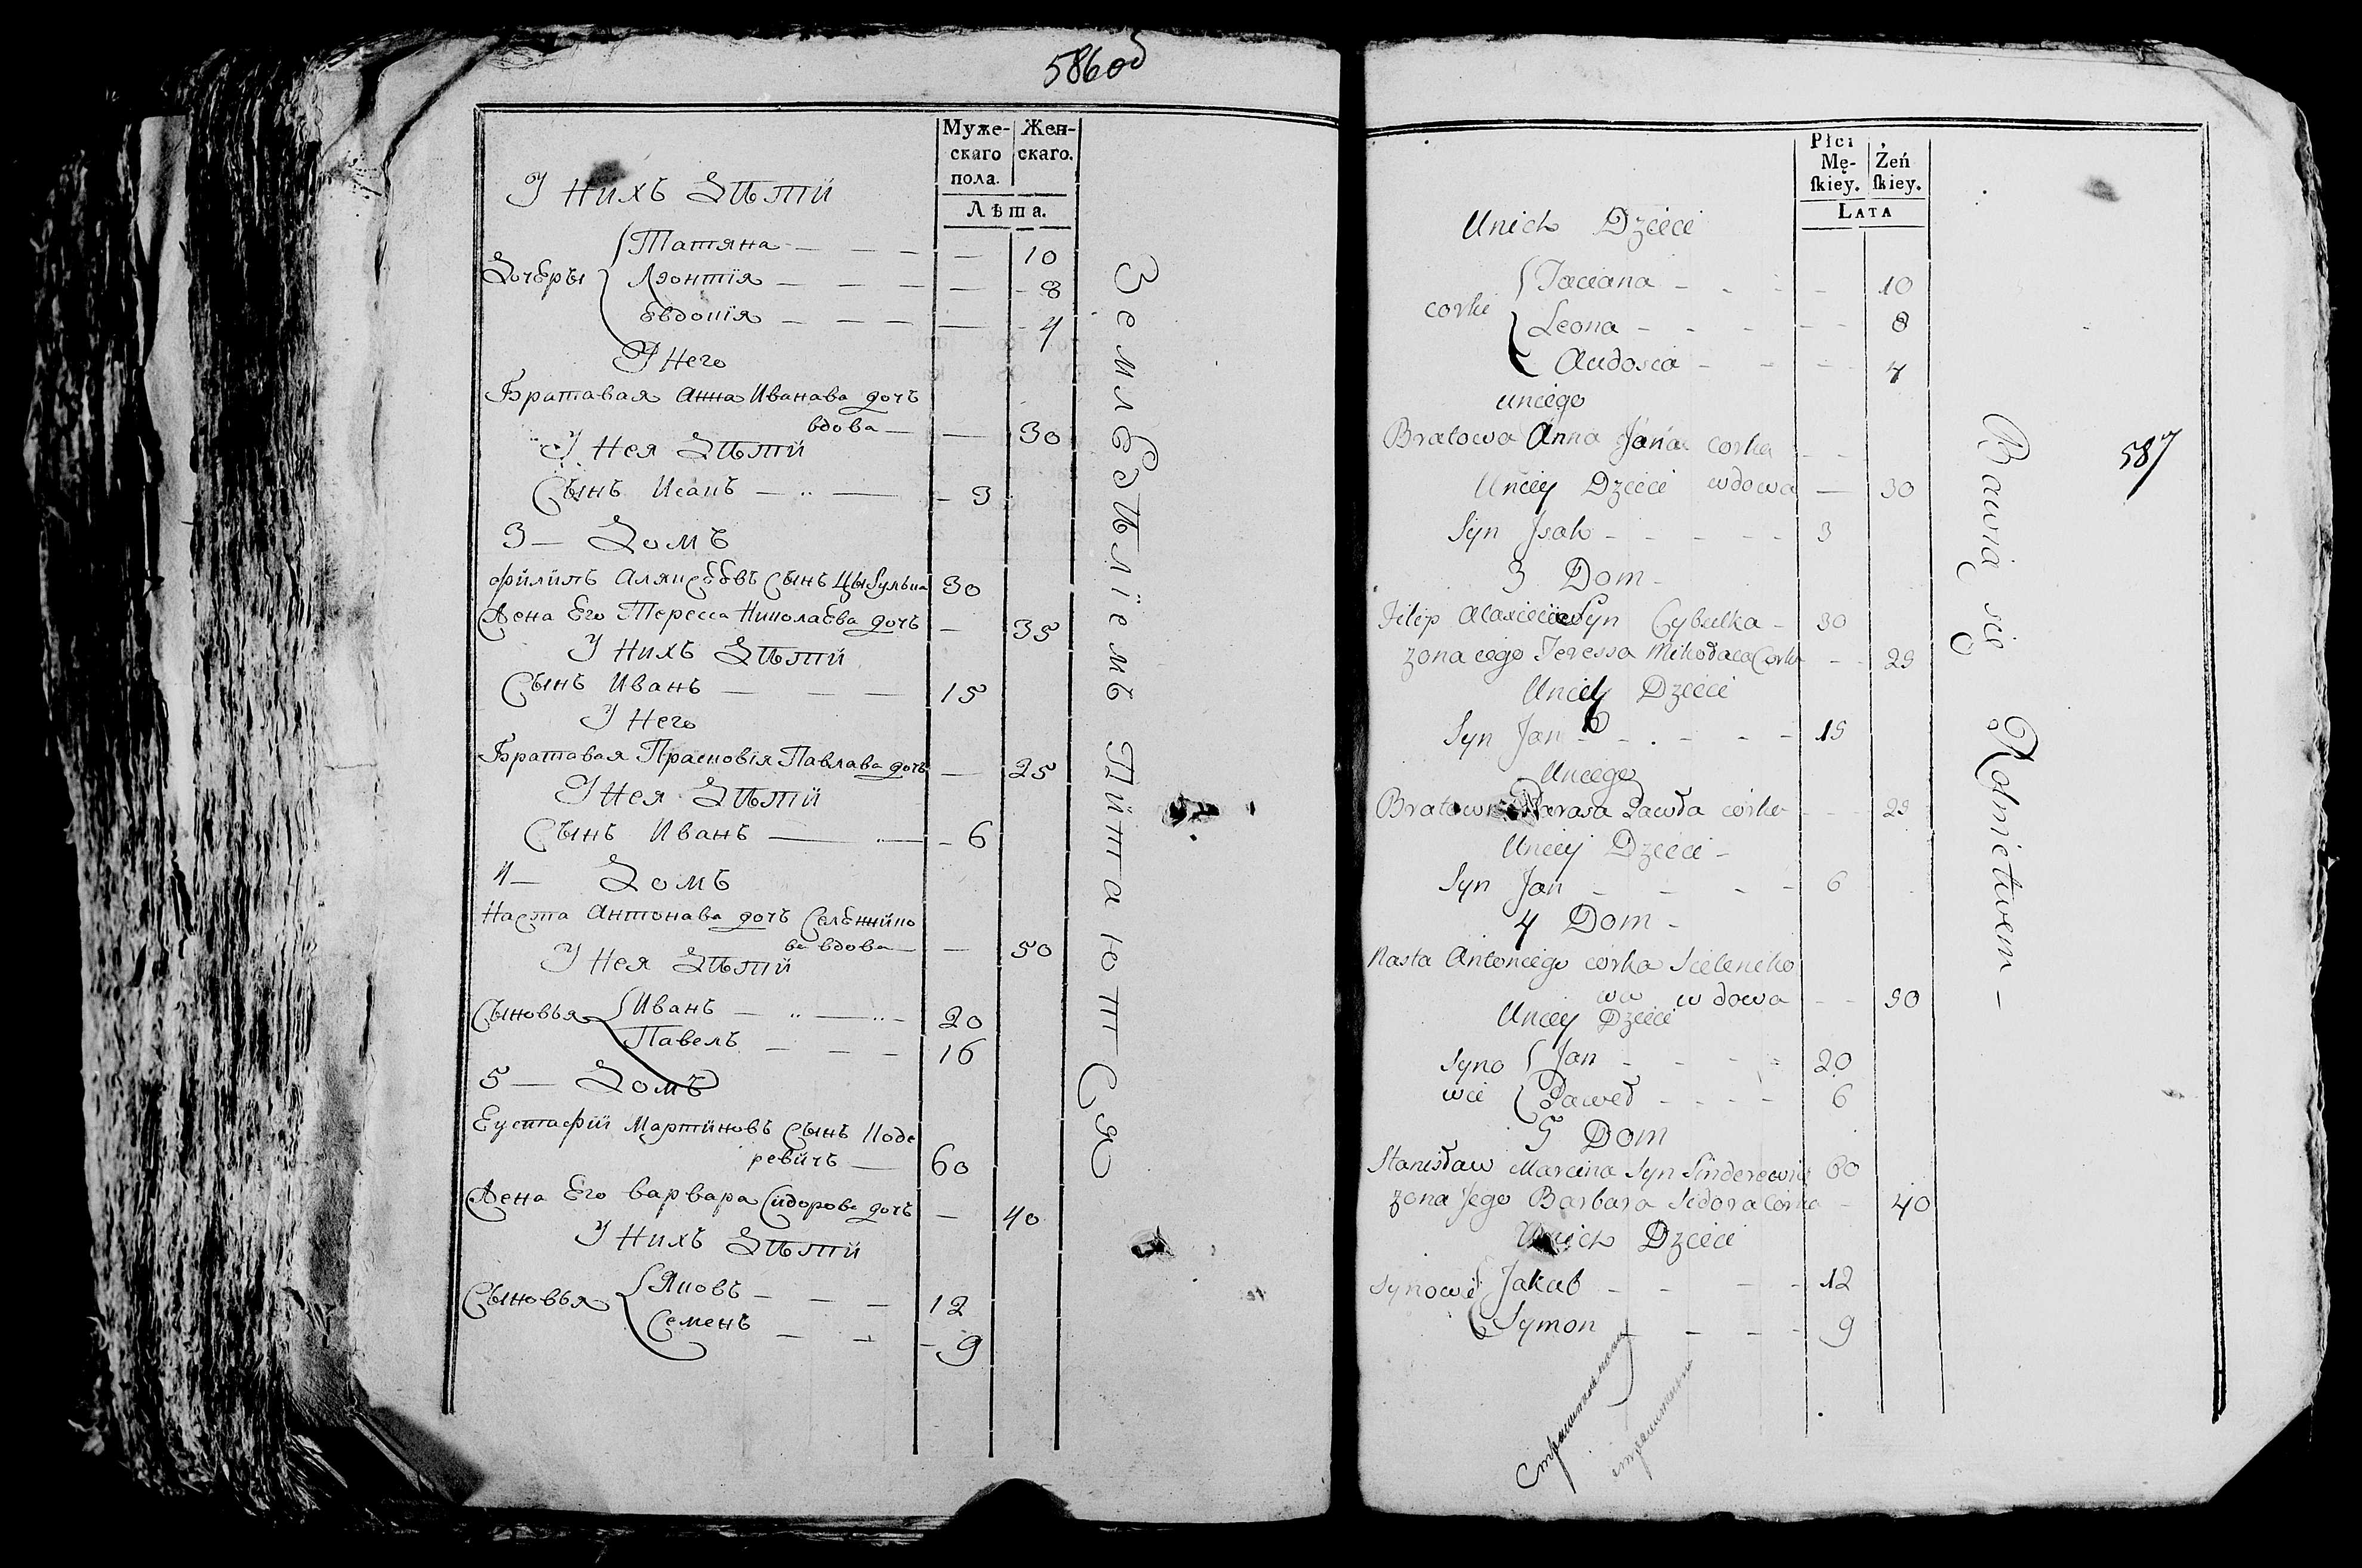 586об
Муже- Жен-
скаго скаго.
пола.
Лѣта.
У Нихъ Дѣтй
Татяна — — — — 10
Дочеры Лэонтія — — — — 8
Евдокія — — — — 4
У Него
Братавая Анна Иванава дочъ
вдова — — 30
У Нея Дѣтй
Сынъ Исакъ — — 3
3 — Домъ
Филипъ Аляксѣевъ Сынъ Цыбулька 30
Жена Его Тересса Николаева дочъ — 35
У Нихъ Дѣтй
Сынъ Иванъ — — — 15
У Него
Братавая Прасковія Павлава дочъ — 25
У Нея Дѣтй
Сынъ Иванъ — — 6
4 — Домъ
Наста Антонава дочъ Селенйко
ва вдова — — 50
У Нея Дѣтй
Сыновья Иванъ — — 20
Павелъ — — — 16
5 — Домъ
Еустафій Мартйновъ Сынъ
ревйчъ — 60
Жена Его Варвара Сйдорова дочъ — 40
У Нихъ Дѣтй
Сыновья Яковъ — — — 12
Семенъ — — 9
Землеdѣліемъ Пйтаются
587
Płci
Mę- Żeń
skiey. skiey.
LATA
Unich Dzieci
Taciana - - - - 10
corki Leona - - - - 8
Audosia - - - 4
uniego
Bratowa Anna Jana corka
Uniey Dzieci wdowa — 30
Syn Jsak - - - - - 3
3 Dom -
Filip Syn Cybulka - 30
zona iego Teressa Mikołaia Corka - - 25
Uniey Dzieci
Syn Jan - - - - - 15
Uniego
Bratowa Parasa Pawła corka - - 25
Uniey Dzieci -
Syn Jan - - - - 6
4 Dom -
Nasta Antoniego corka Sieleniko
wa wdowa - - 50
Uniey Dzieci
Syno Jan - - - - 20
wie Paweł - - - - 6
5 Dom
Stanisław Marcina Syn 60
zona Jego Barbara Sidora Corka - 40
Unich Dzieci
Synowie Jakub - - - - 12
Symon - - - - 9
Bawią się Rolnictwem -